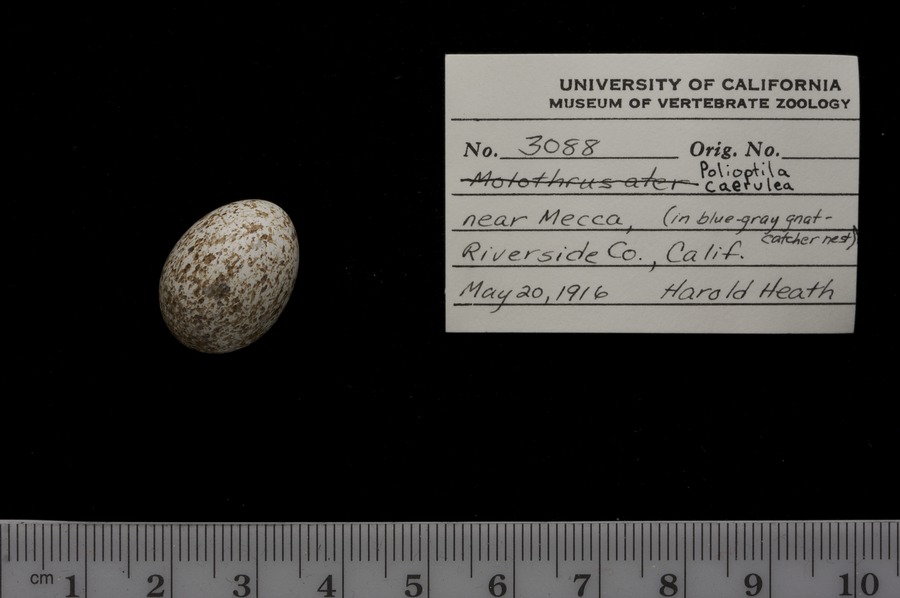 UNIVERSITY OF CALIFORNIA
MUSEUM OF VERTEBRATE ZOOLOGY
No. 3088 Orig. No.
Molothrus ater Polioptila caerulea
near Mecca, (in blue-gray gnat-catcher nest)
Riverside Co., Calif.
May 20, 1916 Harold Heath
cm 1 2 3 4 5 6 7 8 9 10